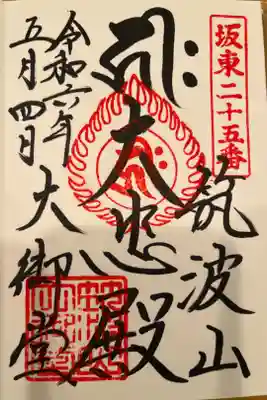 坂東二十五番
筑波山
大悲殿
大御堂
令和六年
五月四日